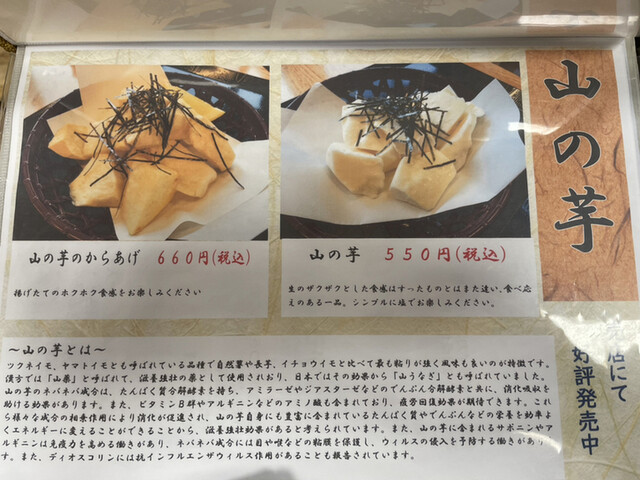 山の芋
山の芋のからあげ 660円(税込)
揚げたてのホクホク食感をお楽しみください
山の芋 550円(税込)
生のザクザクとした食感はすったものとはまた違い、食べ応
えのある一品。シンプルに塩でお楽しみください。
店にて
好評発売中
～山の芋とは～
ツクネイモ、ヤマトイモとも呼ばれている品種で自然薯や長芋、イチョウイモと比べて最も粘りが強く風味も良いのが特徴です。
漢方では「山薬」と呼ばれて、滋養強壮の薬として使用されおり、日本ではその効果から「山うなぎ」とも呼ばれていました。
山の芋のネバネバ成分は、たんぱく質分解酵素を持ち、アミラーゼやジアスターゼなどのでんぷん分解酵素と共に、消化吸収を
助ける効果があります。また、ビタミンB群やアルギニンなどのアミノ酸も含まれており、疲労回復効果が期待できます。これ
ら様々な成分の相乗作用により消化が促進され、山の芋自身にも豊富に含まれているたんぱく質やでんぷんなどの栄養を効率よ
くエネルギーに変えることができることから、滋養強壮効果があると考えられています。また、山の芋に含まれるサポニンやア
ルギニンは免疫力を高める働きがあり、ネバネバ成分には目や喉などの粘膜を保護し、ウィルスの侵入を予防する働きがあり
す。また、ディオスコリンには抗インフルエンザウィルス作用があることも報告されています。